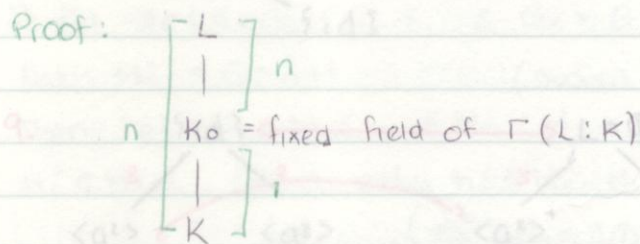 Proof:
L
n
n K₀ = fixed field of Γ(L:K)
1
K